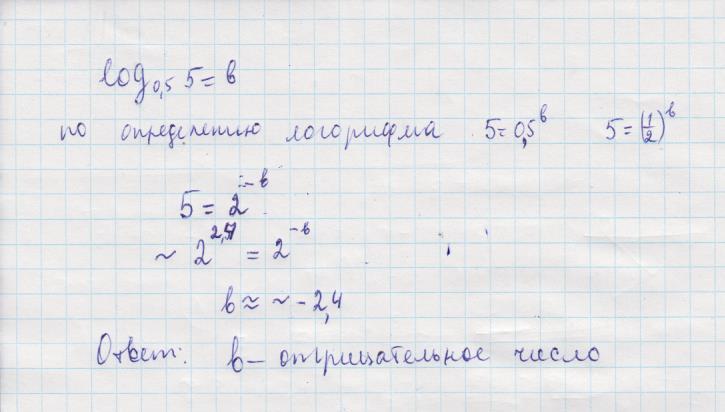 log₀,₅ 5 = в
по определению логорифма 5 = 0,5ᵇ 5 = (1/2)ᵇ
5 = 2⁻ᵇ
~ 2 = 2⁻ᵇ
в ≈ ~ - 2,4
Ответ: в – отрицательное число